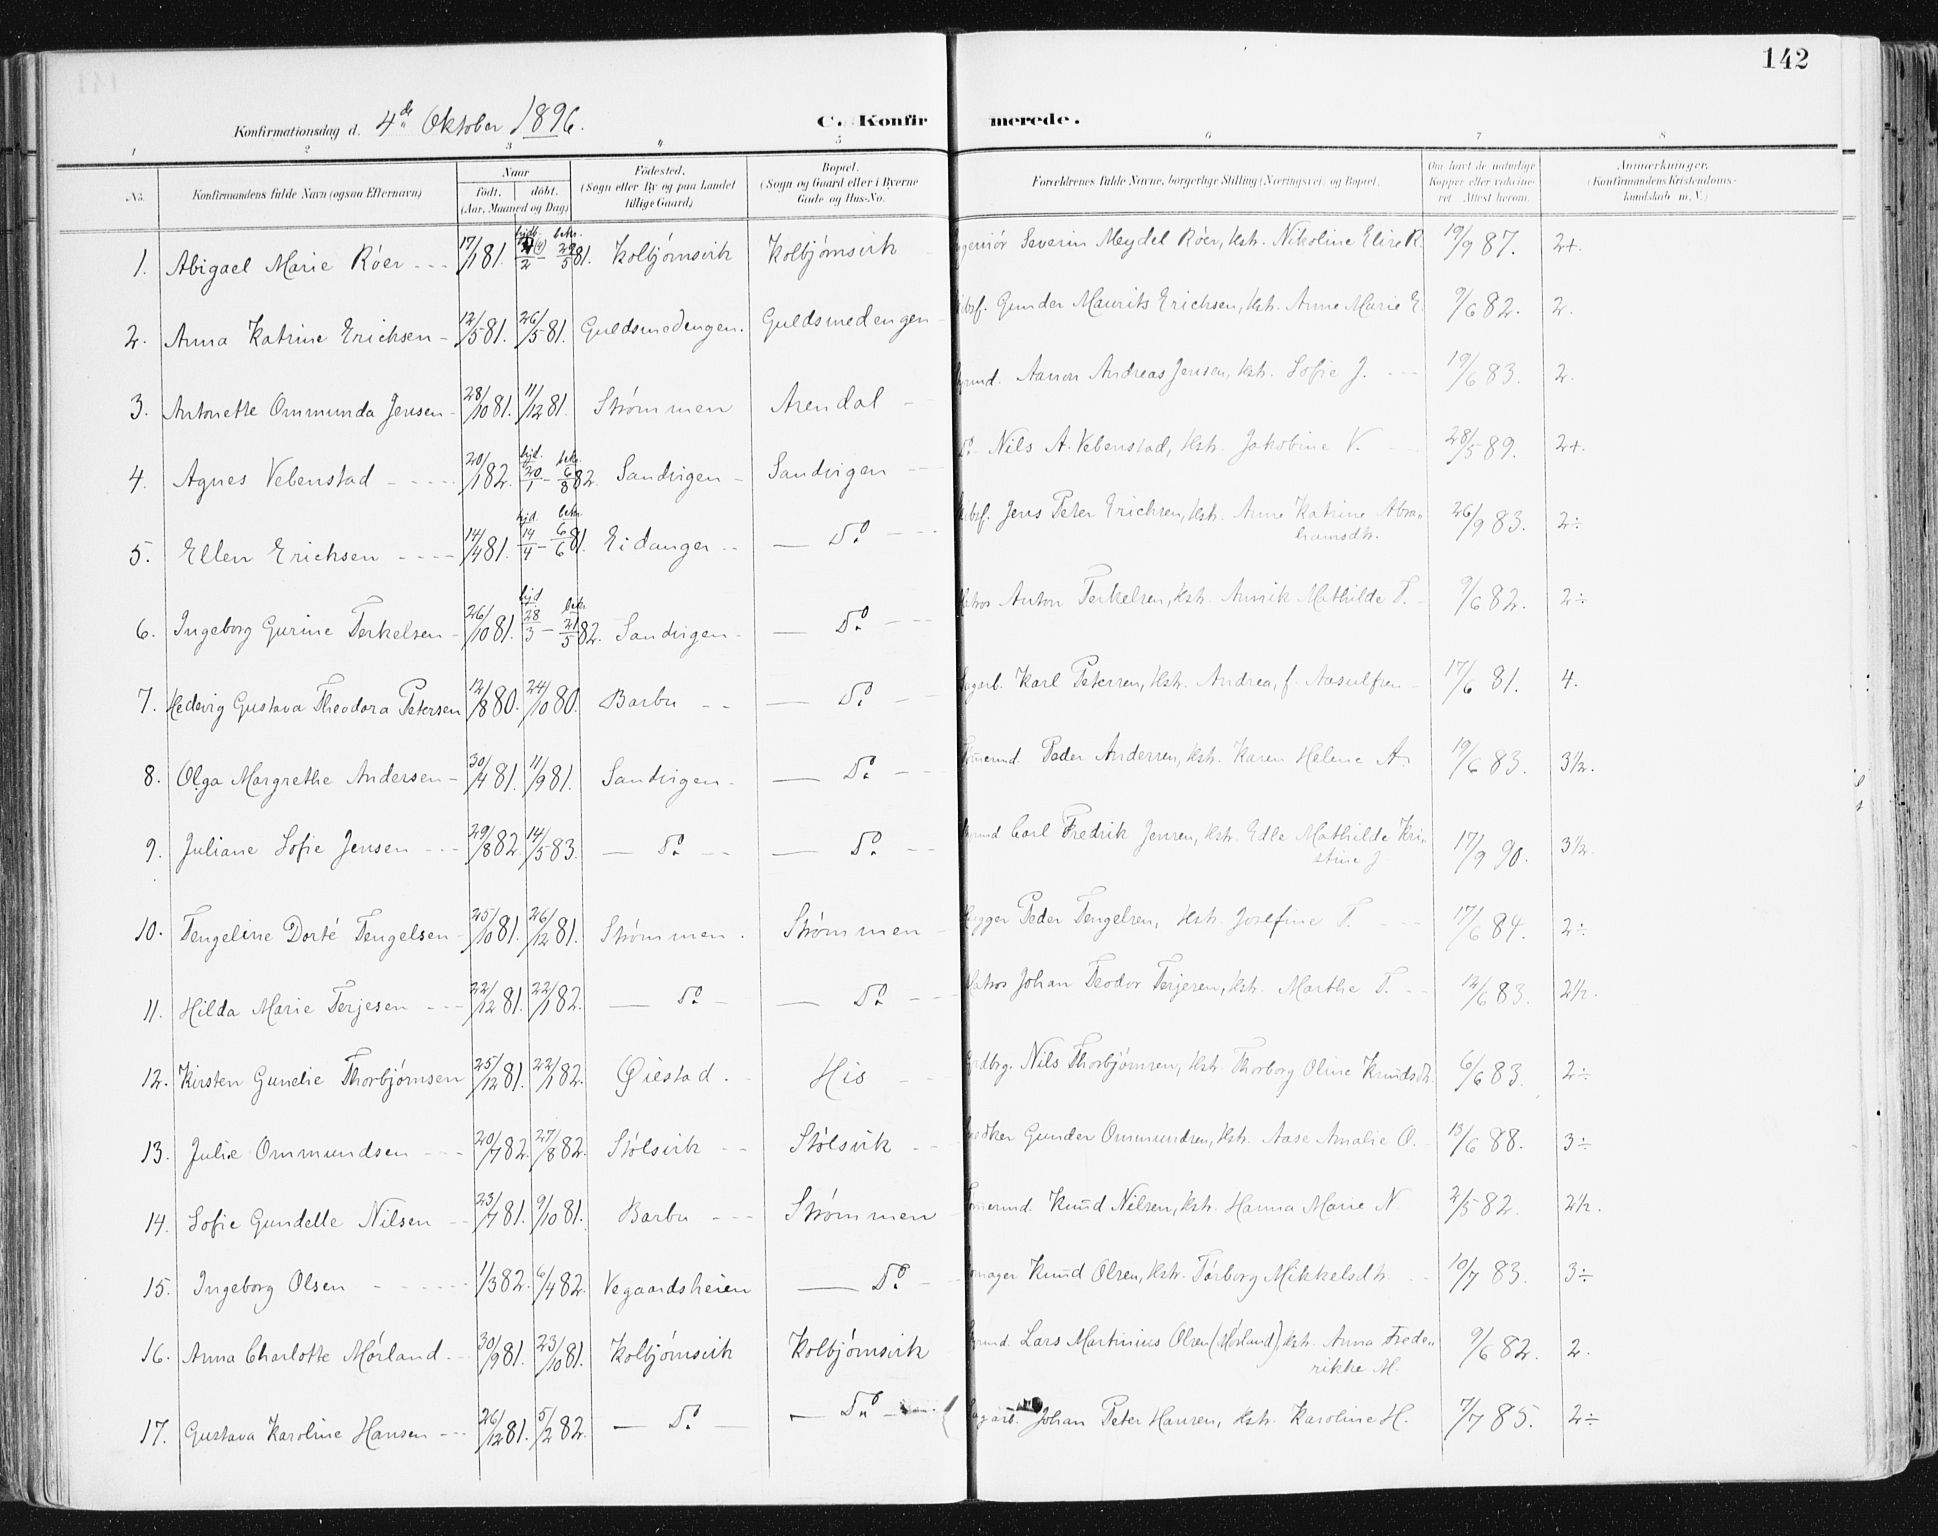 142
Konfirmationsdag d. 4de Oktober 1896.
C. Konfir merede.
1 2 3 4 5 6 7 8
No. Konfirmandens fulde Navn (ogsaa Efternavn) Naar født. døbt. (Aar, Maaned og Dag) Fødested. (Sogn eller By og paa Landet tillige Gaard) Bopæl. (Sogn og Gaard eller i Byerne Gade og Hus-No. Forældrenes fulde Navne, borgerlige Stilling (Næringsvei) og Bopæl. Om havt de naturlige Kopper eller vaccineret. Attest herom. Anmærkninger. (Konfirmandens Kristendomskundskab m. V.)
1. Abigael Marie Róer 17/1 81. 29/5 81. Kolbjórnsvik Kolbjórnsvik Severin Meydel Róer, Kstr. Nikoline Elise R. 19/9 87. 2+.
2. Anna Katrine Erichsen 12/5 81. 26/5 81. Guldsmedengen. Guldsmedengen Gunder Maurits Erichsen, Kstr. Anne Marie E. 9/6 82. 2.
3. Antonette Ommunda Jensen 28/10 81. 11/12 81. Strømmen Arendal Aanon Andreas Jensen, Kstr. Sofie J. 19/6 83. 2.
4. Agnes Vebenstad 20/1 82. hjd. 20/1 - bekr. 6/8 82. Sandvigen Sandvigen Do. Nils A. Vebenstad, Kstr. Jakobine V. 28/5 89. 2+
5. Ellen Erichsen 14/4 81. hjd. 14/4 - bekr. 6/6 81. Eidanger Do. Jens Peter Erichsen, Kstr. Anne Katrine Abra„
hamsdtr. 26/9 83. 2÷
6. Ingeborg Gurine Terkelsen 26/10 81. hjd. 28/3 - bekr. 21/5 82. Sandvigen Do. Anton Terkelsen, Kstr. Annik Mathilde T. 9/6 82. 2÷
7. Hedevig Gustava Theodora Petersen 12/8 80. 24/10 80. Barbu Do. Karl Petersen, Kstr. Andrea, f. Aasulfsen 17/6 81. 4.
8. Olga Margrethe Andersen 30/4 81. 11/9 81. Sandvigen Do. Peder Andersen, Kstr. Karen Helene A. 19/6 83. 3½.
9. Juliane Sofie Jensen 29/8 82. 14/5 83. Do. Do. Carl Fredrik Jensen, Kstr. Edle Mathilde Kri„
stine J. 17/9 90. 3½.
10. Tengeline Dorté Tengelsen 25/10 81. 26/12 81. Strømmen. Strømmen Peder Tengelsen, Kstr. Josefine T. 17/6 84. 2÷
11. Hilda Marie Terjesen 22/12 81. 22/1 82. Do. Do. Johan Teodor Terjesen, Kstr. Marthe T. 12/6 83. 2½.
12. Kirsten Gundie Thorbjórnsen 25/12 81. 22/1 82. Øiestad. His Nils Thorbjórnsen, Kstr. Thorborg Oline Knudsdtr. 6/6 83. 2÷
13. Julie Ommundsen 20/7 82. 27/8 82. Stólsvik Stólsvik Gunder Ommundsen, Kstr. Aase Amalie O. 13/6 88. 3÷
14. Sofie Gundelle Nilsen 23/7 81. 9/10 81. Barbu Strømmen Knud Nilsen, Kstr. Hanna Marie N. 2/5 82. 2½.
15. Ingeborg Olsen 1/3 82. 6/4 82. Vegaardsheien Do. Knud Olsen, Kstr. Tórborg Mikkelsdtr. 10/7 83. 3÷
16. Anna Charlotte Mórland. 30/9 81. 23/10 81. Kolbjórnsvik Kolbjórnsvik Lars Martinius Olsen (Mórland), Kstr. Anna Frede„
rikke M. 9/6 82. 2.
17. Gustava Karoline Hansen 26/12 81. 5/2 82. Do. Do. Johan Peter Hansen, Kstr. Karoline H. 7/7 85. 2÷